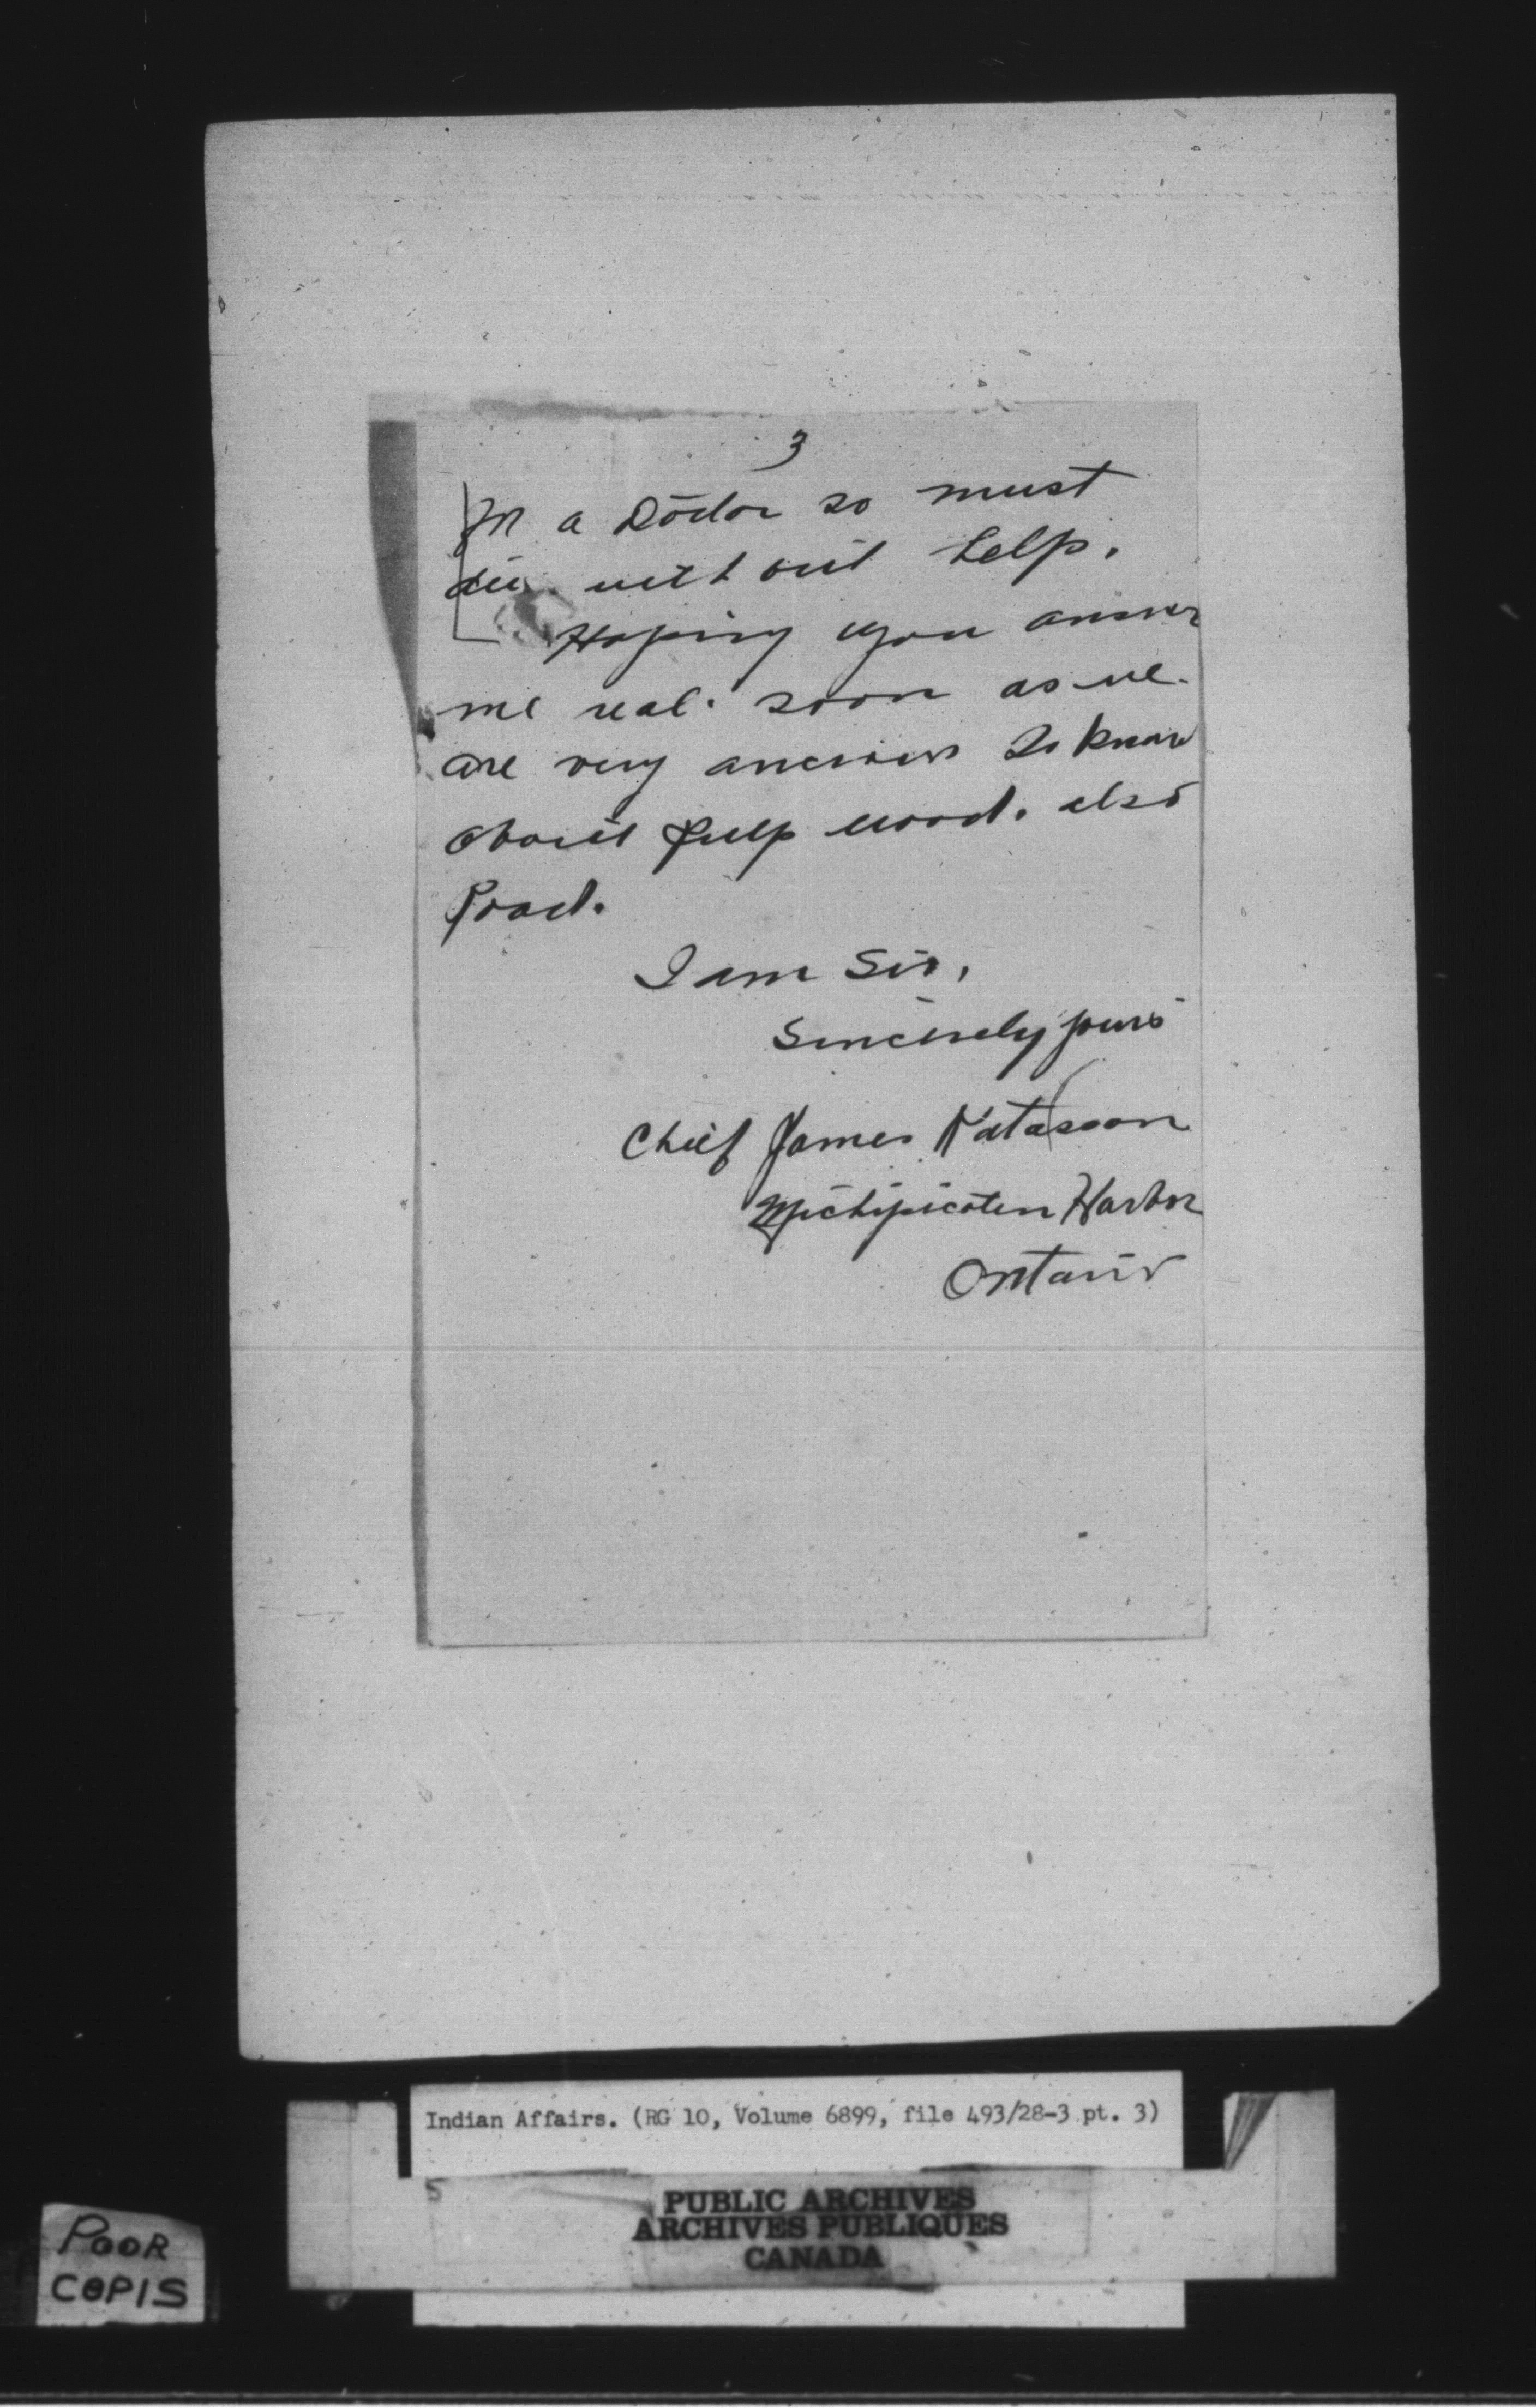 3
for a Doctor so must
die without help.
Hoping you answer
me real soon as we
are very anxious to know
about pulp wood. also
Road.
I am Sir,
Sincerely yours
Chief James
Michipicoten Harbor
Ontario
Indian Affairs. (RG 10, Volume 6899, file 493/28-3 pt. 3)
5
PUBLIC ARCHIVES
ARCHIVES PUBLIQUES
CANADA
POOR
COPIS